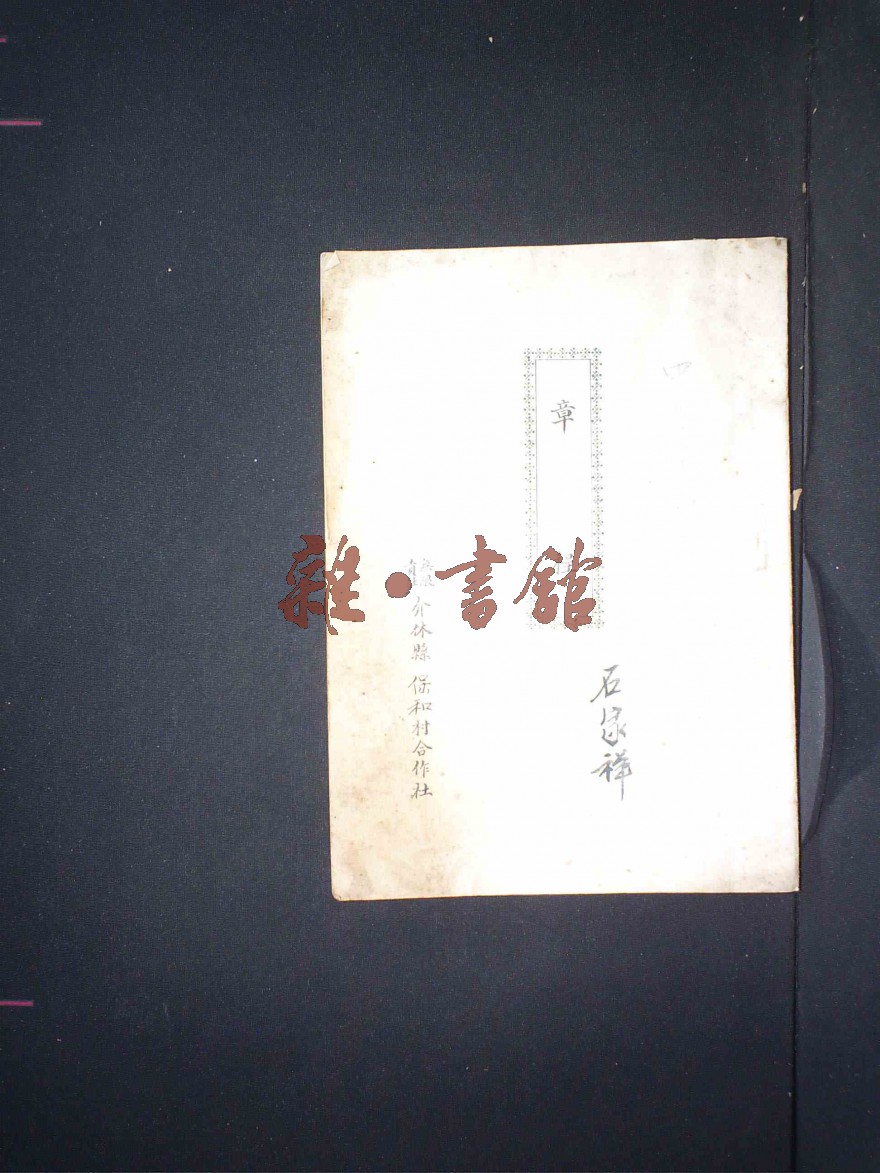 四
章
石家祥
介休縣保和村合作社
雜·書館